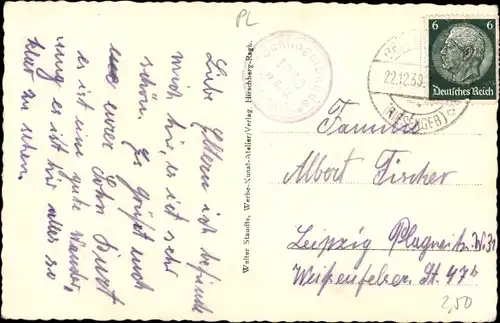 PL
Liebe Eltern ich befinde
mich hier es ist sehr
schön. Es grüßt euch
euer Sohn Kurt
es ist eine gute Wander
ung es ist hir alles so
klar zu sehen.
Walter Staudte, Werbe-Kunst-Atelier/Verlag, Hirschberg-Rsgb.
22.12.39
(RIESENGEB)
6 6
Deutsches Reich
Familie
Albert Fischer
Leipzig Plagwitz W.31
Weißenfelser St. 47b
2,50